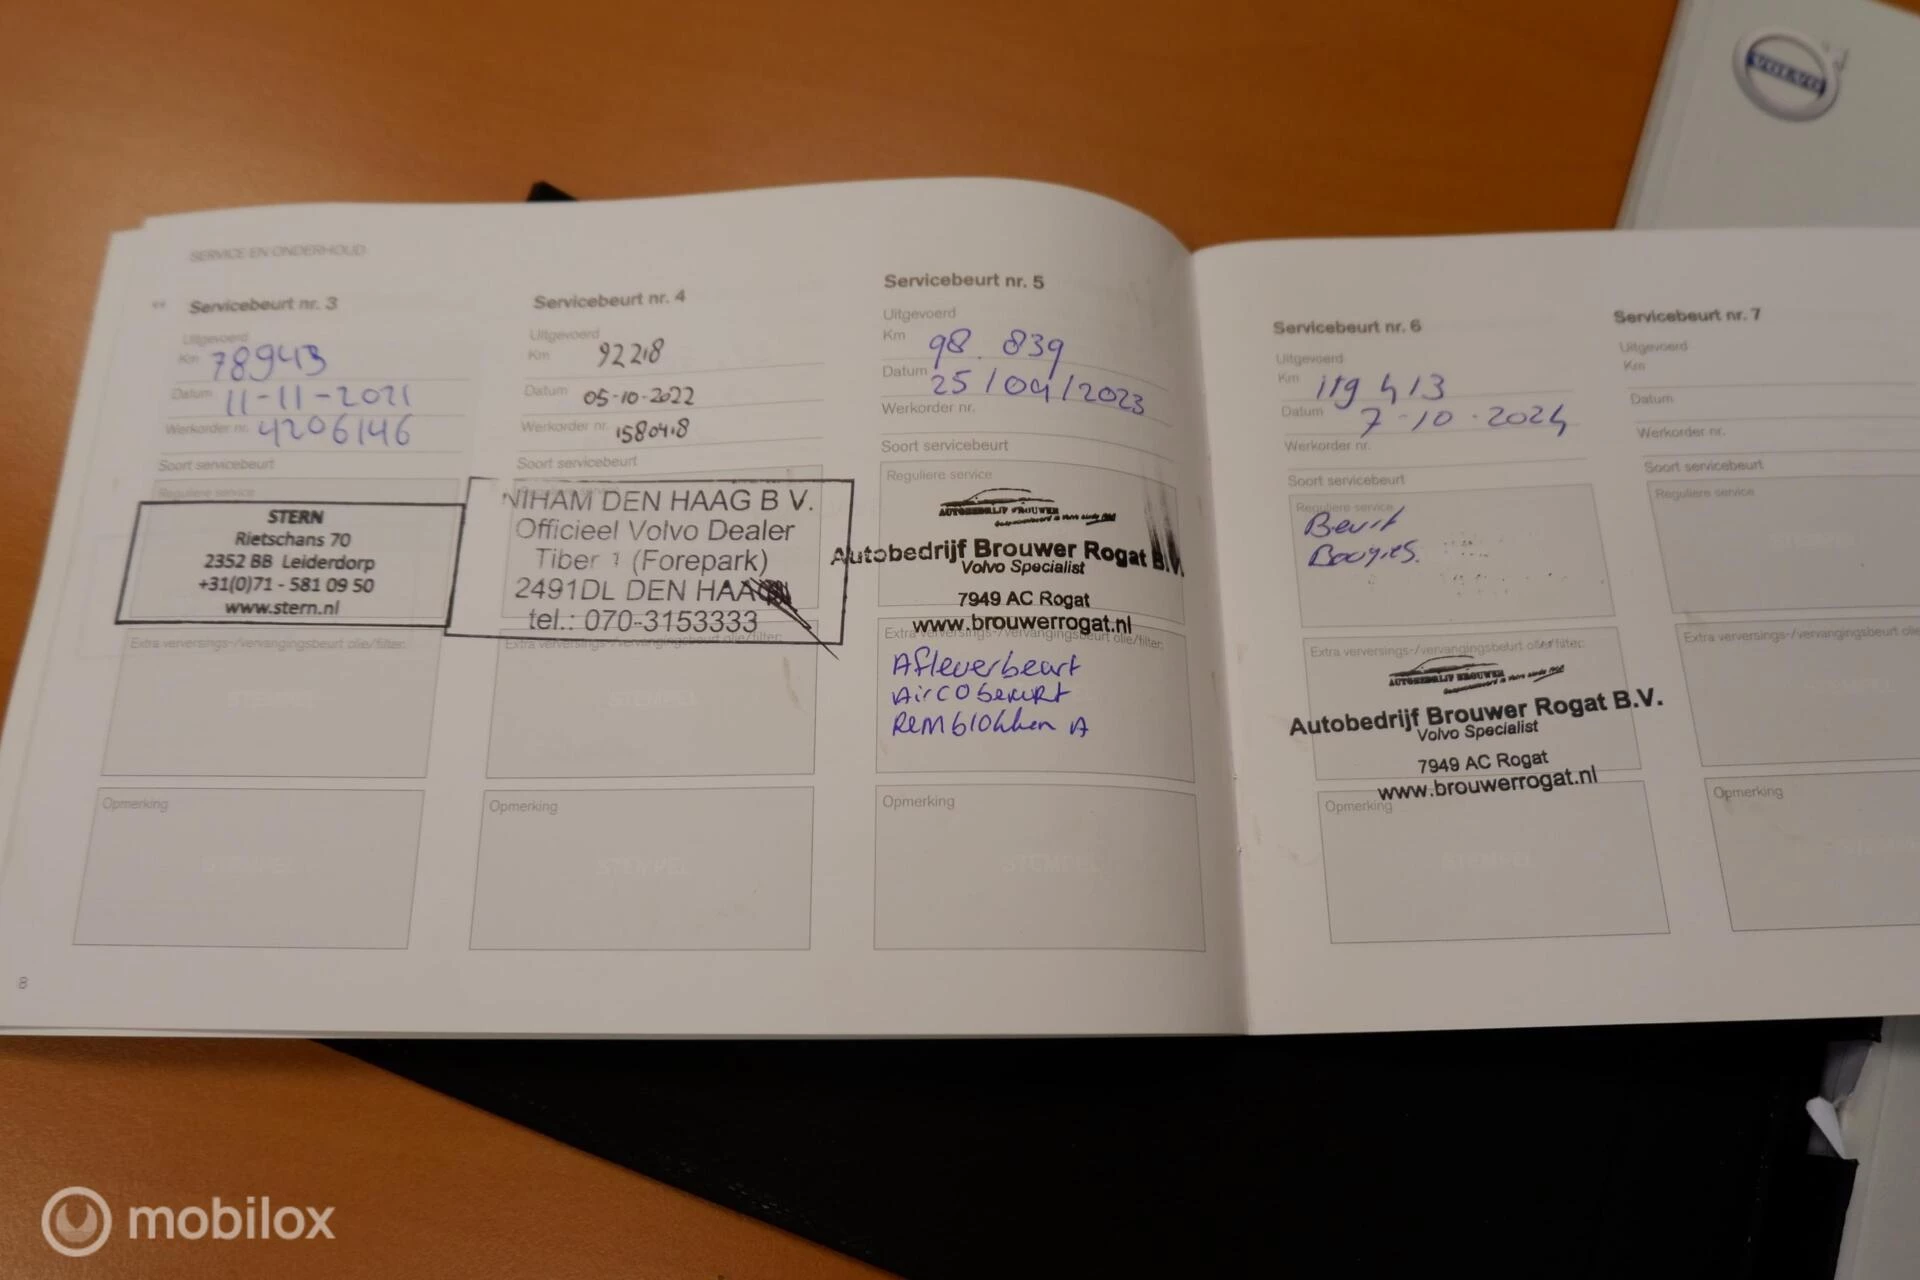 VOLVO
SERVICE EN ONDERHOUD
Servicebeurt nr. 3
Uitgevoerd
Km 78943
Datum 11-11-2021
Werkorder nr. 4206146
Soort servicebeurt
Reguliere service
STERN
Rietschans 70
2352 BB Leiderdorp
+31(0)71 - 581 09 50
www.stern.nl
Extra verversings-/vervangingsbeurt olie/filter:
STEMPEL
Opmerking
STEMPEL
8
Servicebeurt nr. 4
Uitgevoerd
Km 92218
Datum 05-10-2022
Werkorder nr. 1580418
Soort servicebeurt
NIHAM DEN HAAG B V.
Officieel Volvo Dealer
Tiber 1 (Forepark)
2491DL DEN HAAG
tel.: 070-3153333
Extra verversings-/vervangingsbeurt olie/filter:
STEMPEL
Opmerking
STEMPEL
Servicebeurt nr. 5
Uitgevoerd
Km 98.839
Datum 25/04/2023
Werkorder nr.
Soort servicebeurt
Reguliere service
AUTOBEDRIJF BROUWER
Autobedrijf Brouwer Rogat B.V.
Volvo Specialist
7949 AC Rogat
www.brouwerrogat.nl
Extra verversings-/vervangingsbeurt olie/filter:
Afleverbeurt
Aircobeurt
Remblokken A
Opmerking
STEMPEL
Servicebeurt nr. 6
Uitgevoerd
Km 119413
Datum 7-10-2024
Werkorder nr.
Soort servicebeurt
Reguliere service
Beurt
Bougies.
Extra verversings-/vervangingsbeurt olie/filter:
AUTOBEDRIJF BROUWER
Autobedrijf Brouwer Rogat B.V.
Volvo Specialist
7949 AC Rogat
www.brouwerrogat.nl
Opmerking
STEMPEL
Servicebeurt nr. 7
Uitgevoerd
Km
Datum
Werkorder nr.
Soort servicebeurt
Reguliere service
Extra verversings-/vervangingsbeurt olie
Opmerking
mobilox